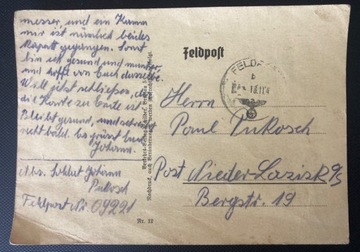 messer, und ein Kamm
mir ist nämlich beides
kaputt gegangen. Sonst
bin ich gesund und munter,
und hoffe von Euch dasselbe.
Will jetzt schließen, da
die Karte zu Ende ist
Bleibt gesund, und schreibt
recht bald. Es grüßt Euch
Johann.
Abs. Johann
Pukosch
Feldpost Nr. 04221
Nr. 10
Feldpost
FELDP
b
Herrn
Paul Pukosch
Post Nieder-Lazisk O/S
Bergstr. 19